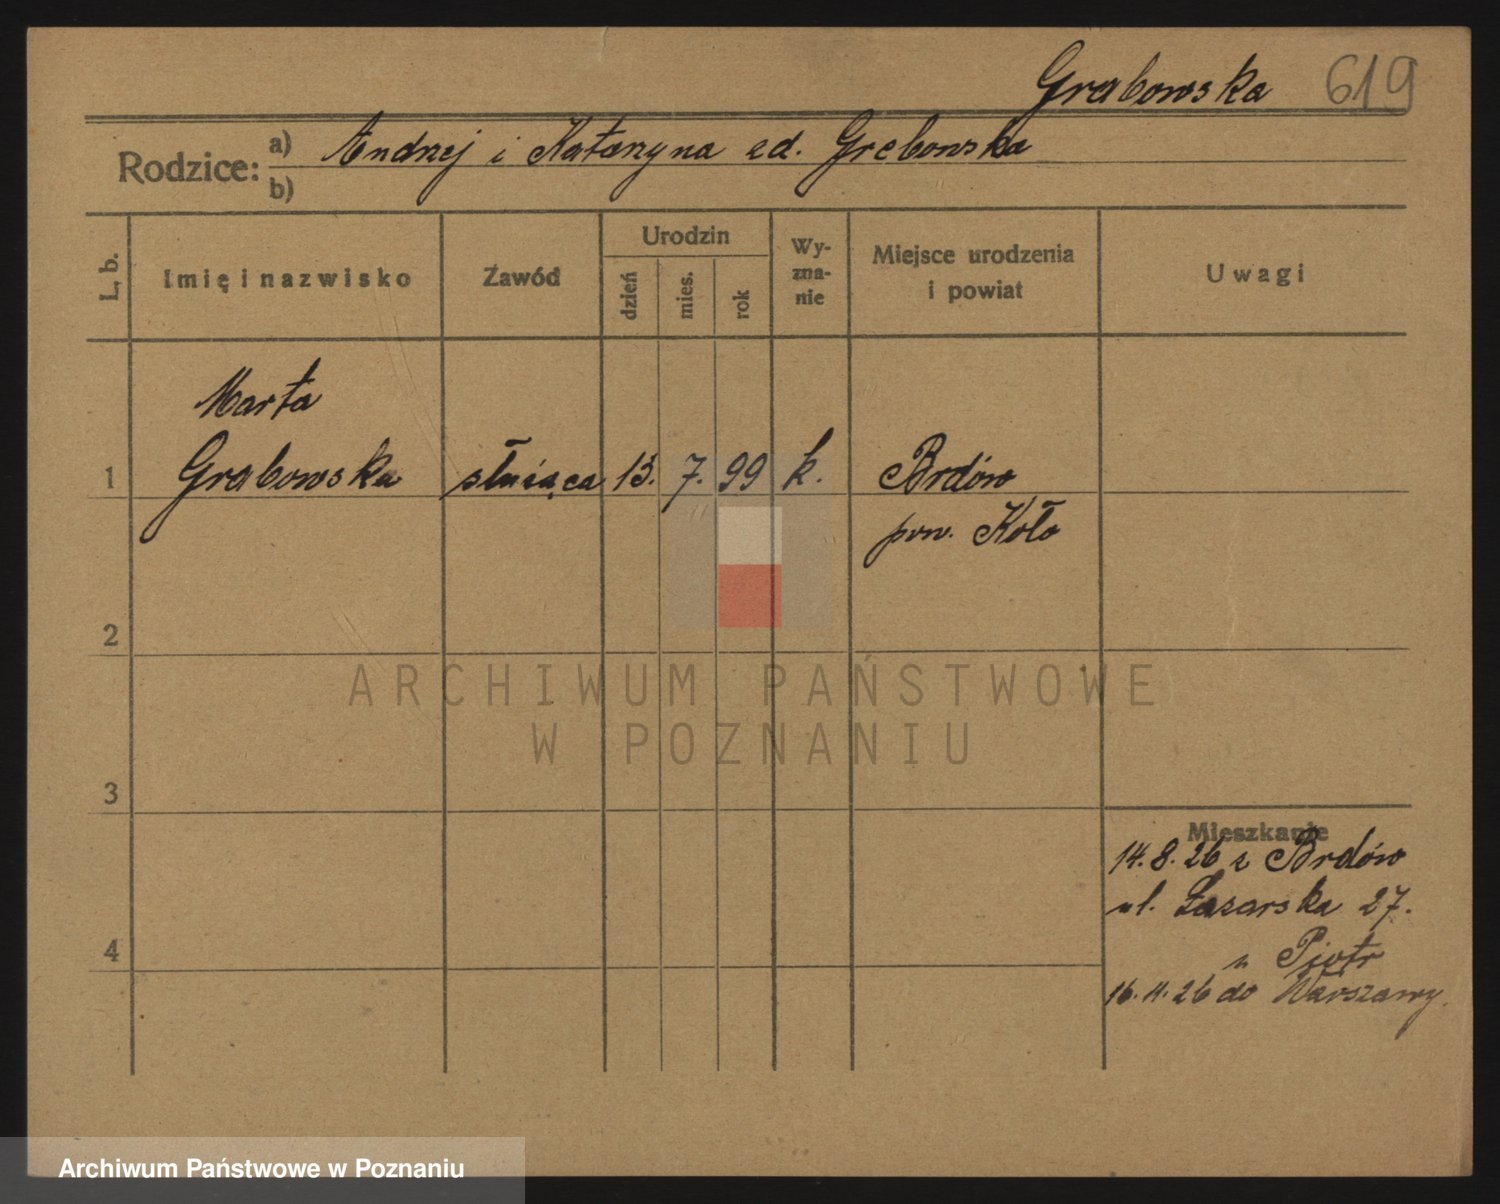 Grabowska 619
Rodzice: a) Andrzej i Katarzyna zd. Grabowska
b)
L. b. Imię i nazwisko Zawód Urodzin dzień mies. rok Wy-zna-nie Miejsce urodzenia i powiat Uwagi
Marta
1 Grabowska służąca 13. 7. 99 k. Brdów
pow. Koło
2
ARCHIWUM PAŃSTWOWE
W POZNANIU
3
Mieszkanie
14. 8. 26 z Brdów
ul. Łazarska 27.
4 u Piotr
16. 11. 26 do Warszawy.
Archiwum Państwowe w Poznaniu